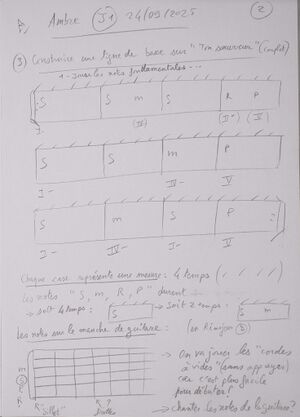 Ambre J1 24/09/2025 2
③ Construire une ligne de base sur "Ton souvenir" (Couplet)
1 - Jouer les notes fondamentales ...
S S m S R P
I- (IV) (II-) (V)
S S m P
I- IV- V
S m S P
I- IV- I- V
Chaque case représente une mesure: 4 temps (/ / / /)
Les notes "S, m, R, P" durent
→ soit 4 temps: S → soit 2 temps: S m
Les notes sur le manche de guitare: (en Kinejoy
m
S
P
R
"sillet" frettes
→ On va jouer les "cordes
à vides" (sans appuyer)
car c'est plus facile
pour débuter!
→ chanter les notes de la guitare?